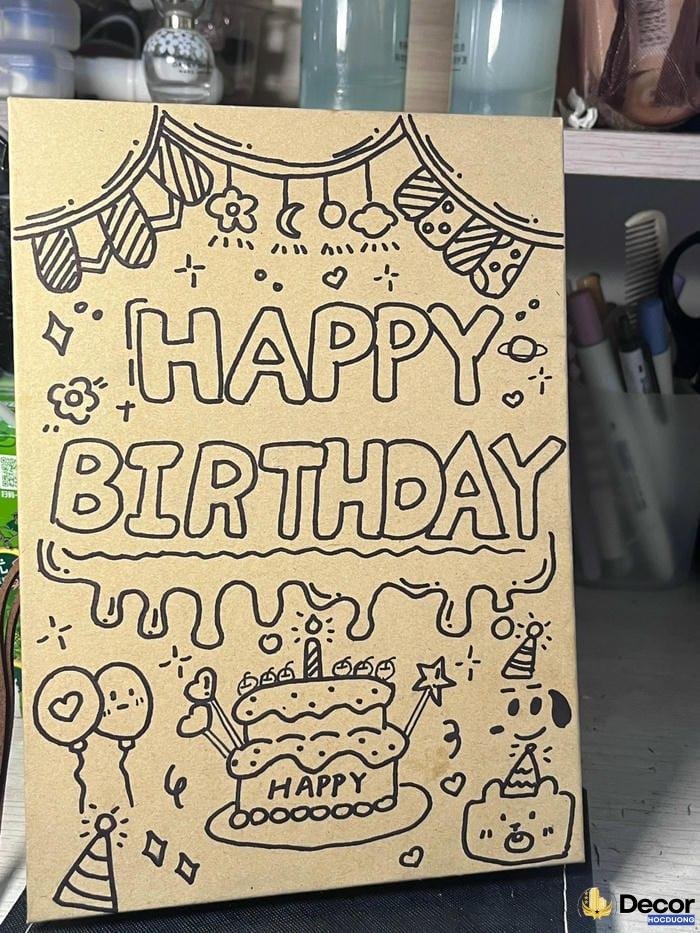 HAPPY
BIRTHDAY
HAPPY
Decor
HOCDUONG